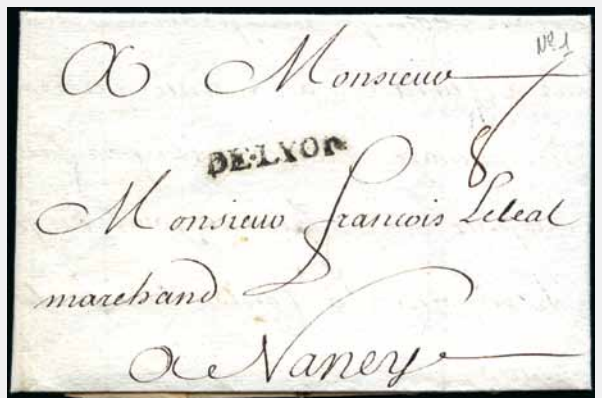 No. 1
A Monsieur
8
DE·LYON
Monsieur francois Leleal
marchand
a Nancy